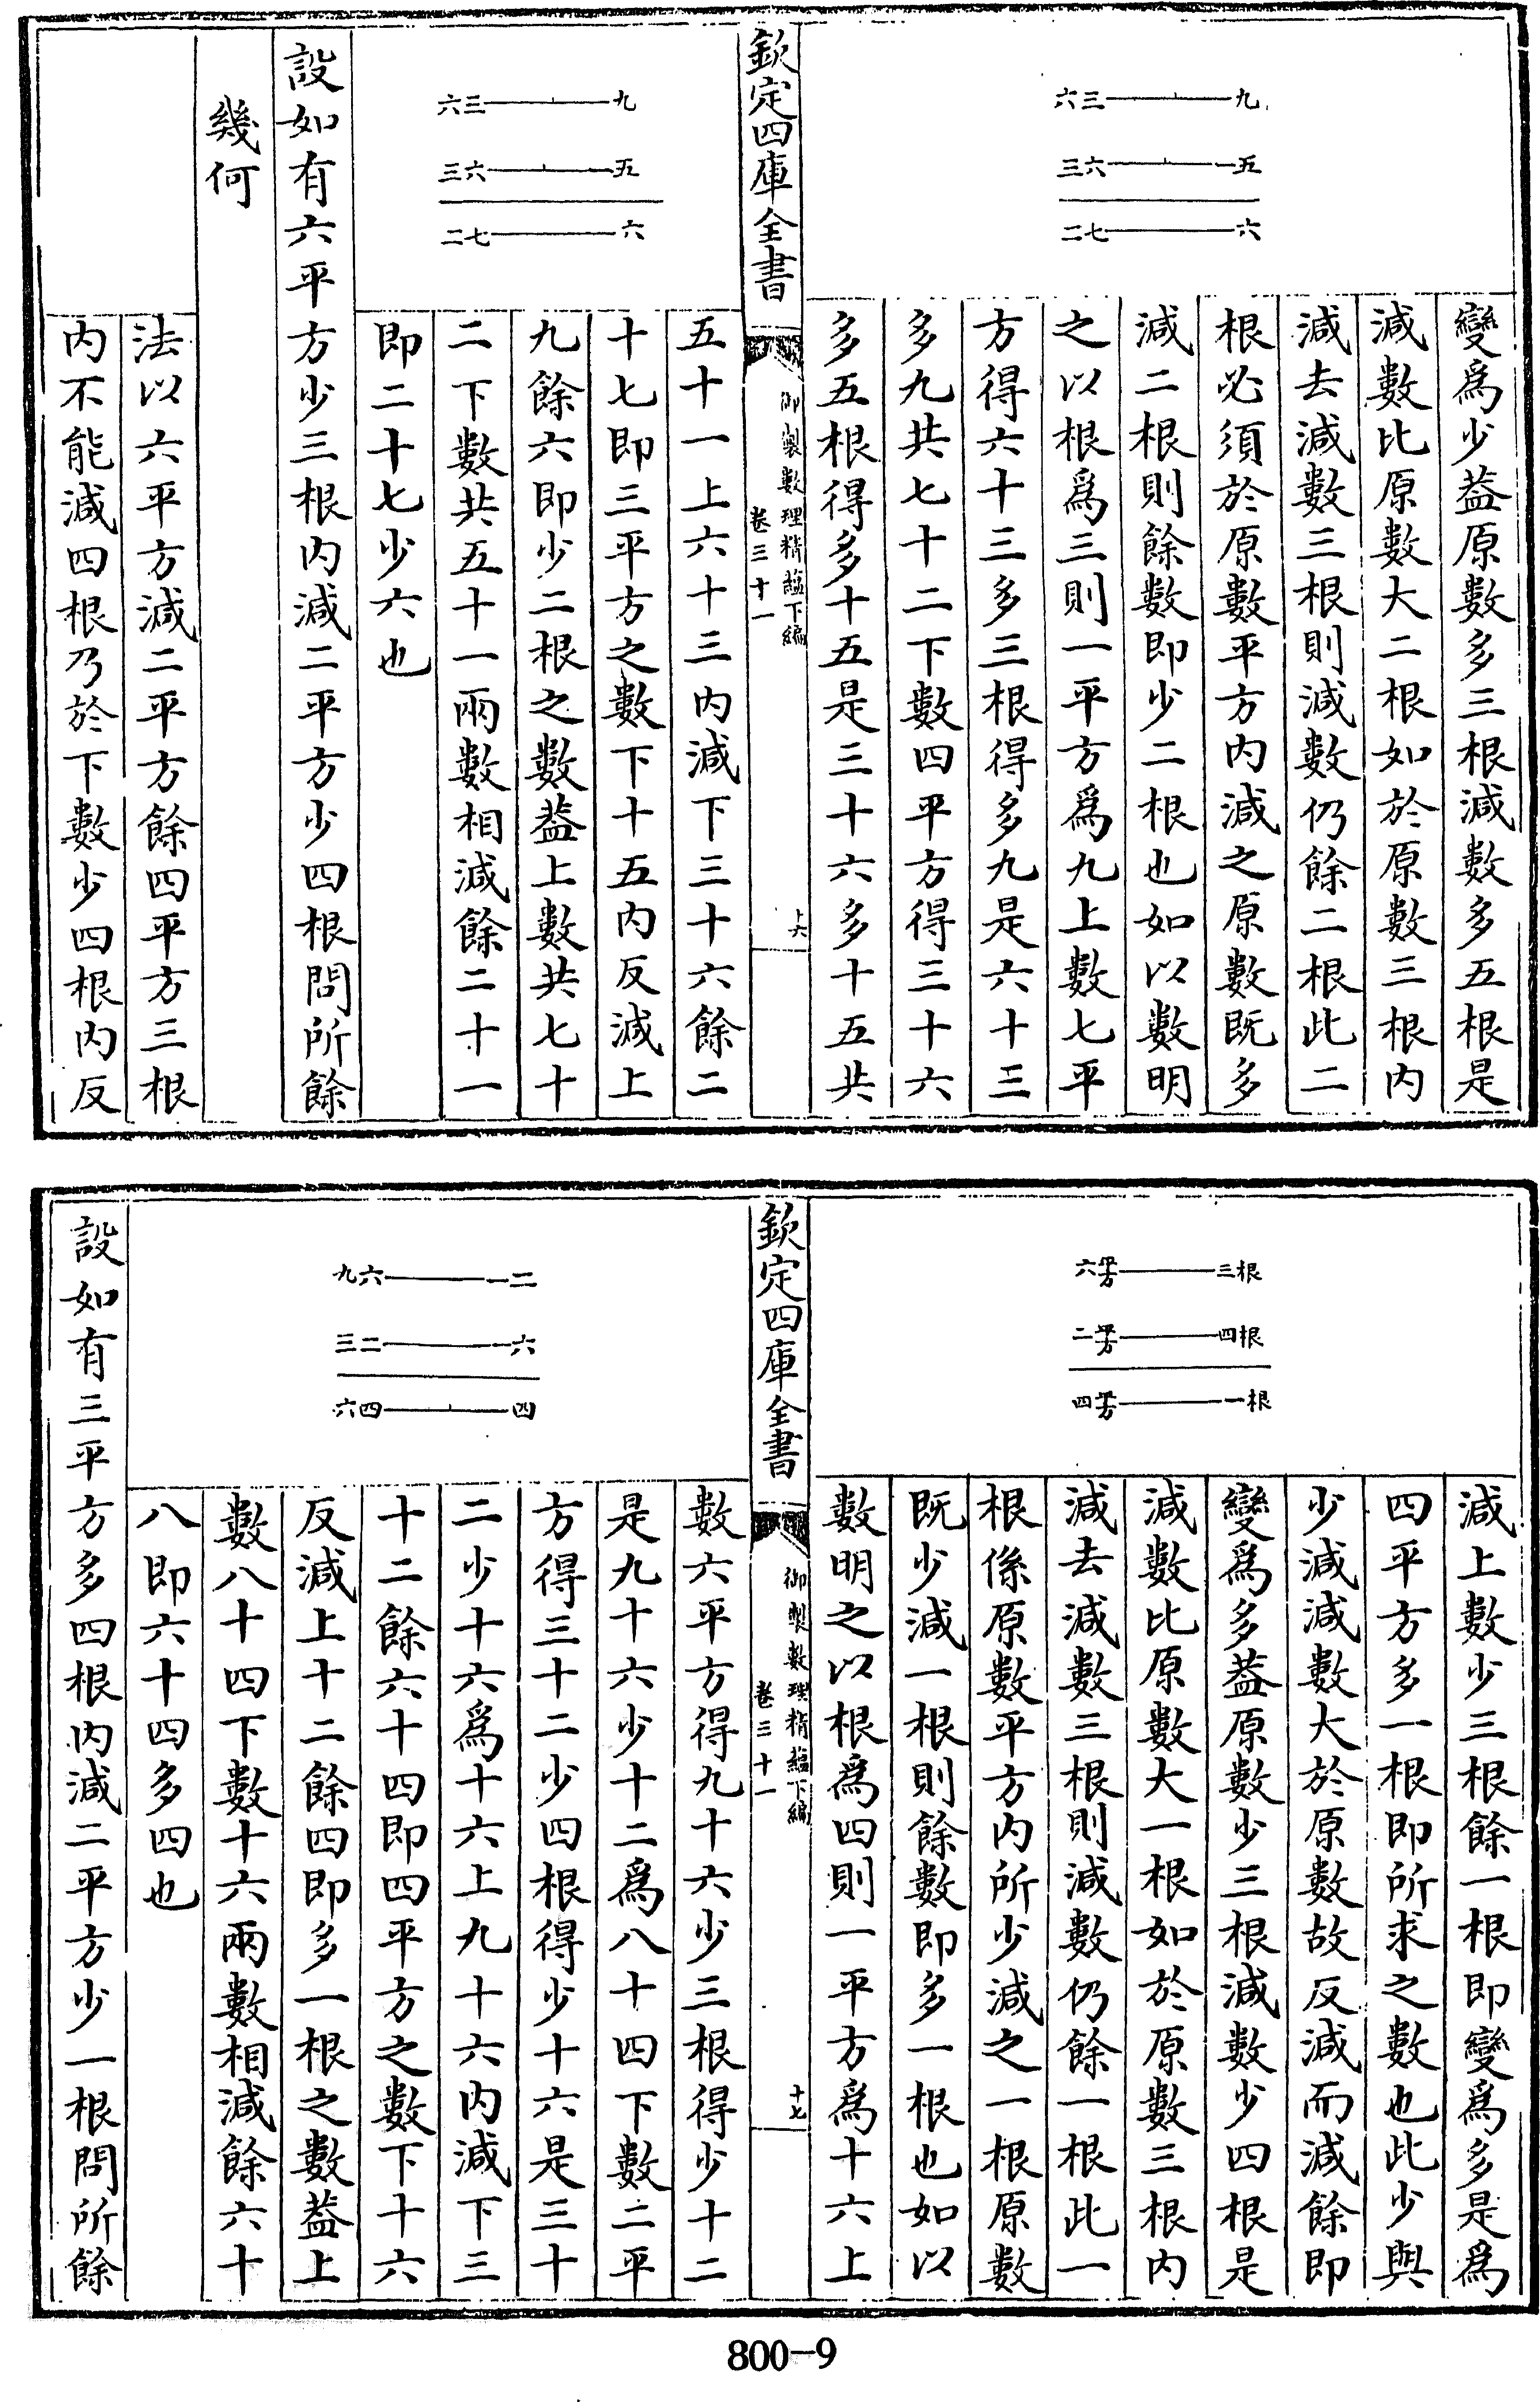 六三　九
三六　一五
二七　六
變爲少葢原數多三根減數多五根是
減數比原數大二根如於原數三根内
減去減數三根則減數仍餘二根此二
根必須於原數平方内減之原數既多
減二根則餘數即少二根也如以數明
之以根爲三則一平方爲九上數七平
方得六十三多三根得多九是六十三
多九共七十二下數四平方得三十六
多五根得多十五是三十六多十五共
欽定四庫全書
御製數理精藴下編
卷三十一
六三　九
三六　一五
二七　六
五十一上六十三内減下三十六餘二
十七即三平方之數下十五内反減上
九餘六即少二根之數葢上數共七十
二下數共五十一兩數相減餘二十一
即二十七少六也
設如有六平方少三根内減二平方少四根問所餘
幾何
法以六平方減二平方餘四平方三根
内不能減四根乃於下數少四根内反
六平方　三根
二平方　四根
四平方　一根
減上數少三根餘一根即變爲多是爲
四平方多一根即所求之數也此少與
少減減數大於原數故反減而減餘即
變爲多葢原數少三根減數少四根是
減數比原數大一根如於原數三根内
減去減數三根則減數仍餘一根此一
根係原數平方内所少減之一根原數
既少減一根則餘數即多一根也如以
數明之以根爲四則一平方爲十六上
欽定四庫全書
御製數理精藴下編
卷三十一
十七
九六　一二
三二　一六
六四　四
數六平方得九十六少三根得少十二
是九十六少十二爲八十四下數二平
方得三十二少四根得少十六是三十
二少十六爲十六上九十六内減下三
十二餘六十四即四平方之數下十六
反減上十二餘四即多一根之數葢上
數八十四下數十六兩數相減餘六十
八即六十四多四也
設如有三平方多四根内減二平方少一根問所餘
800-9